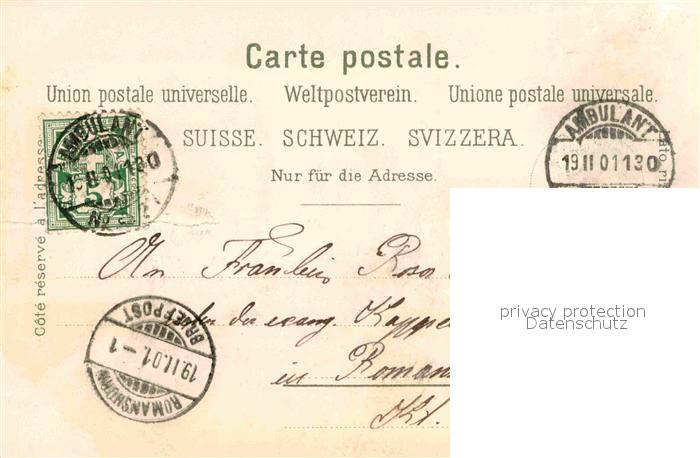 Carte postale.
Union postale universelle. Weltpostverein. Unione postale universale.
SUISSE. SCHWEIZ. SVIZZERA.
Nur für die Adresse.
Côté réservé à l'adresse
AMBULANT
5
AMBULANT
19 II 01 130
An Fräulein Rosa
der evang. Kappe
in Roman
Kt.
BRIEFPOST
19.II.01.-1
ROMANSHORN
privacy protection
Datenschutz